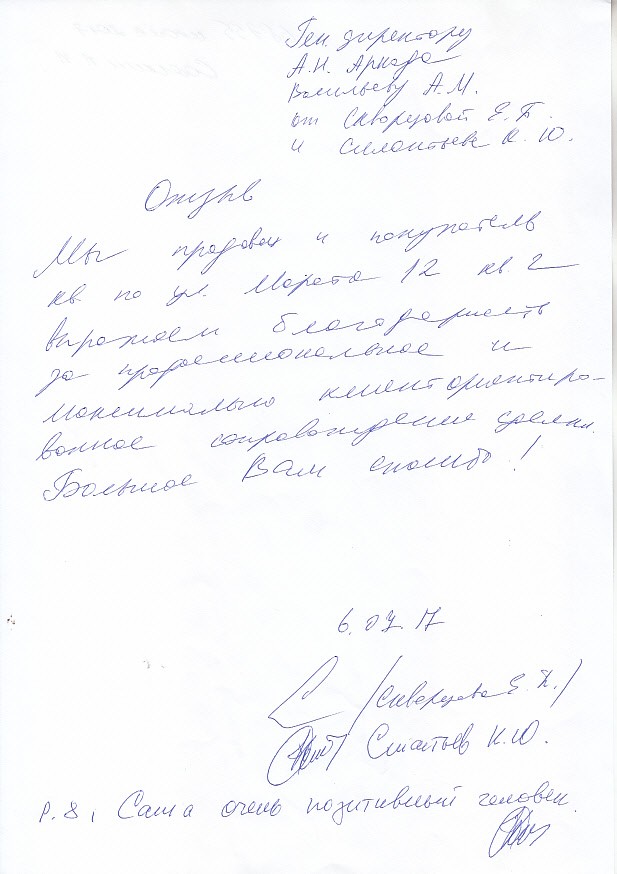 Ген. директору
А.Н. Аркада
Васильеву А.М.
от Скворцовой Е.П.
и Силантьева К.Ю.
Отзыв
Мы продавец и покупатель
кв. по ул. Марата 12 кв. 2
выражаем благодарность
за профессиональное и
максимально клиенториентиро-
ванное сопровождение сделки.
Большое Вам спасибо!
6.07.17
/Скворцова Е.П./
Силантьев К.Ю.
P.S, Саша очень позитивный человек.